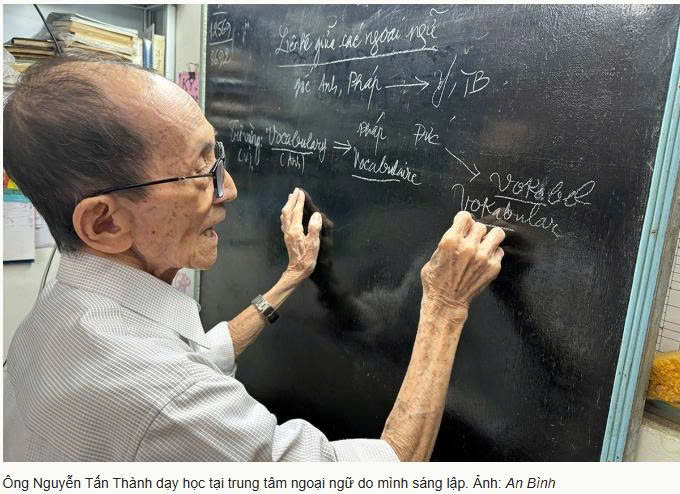 Liên hệ giữa các ngoại ngữ
gốc Anh, Pháp → Ý, TB
Từ vựng: Vocabulary ⇒ Pháp Đức
(Anh) Vocabulaire
Vokabular
Ông Nguyễn Tấn Thành dạy học tại trung tâm ngoại ngữ do mình sáng lập. Ảnh: An Bình